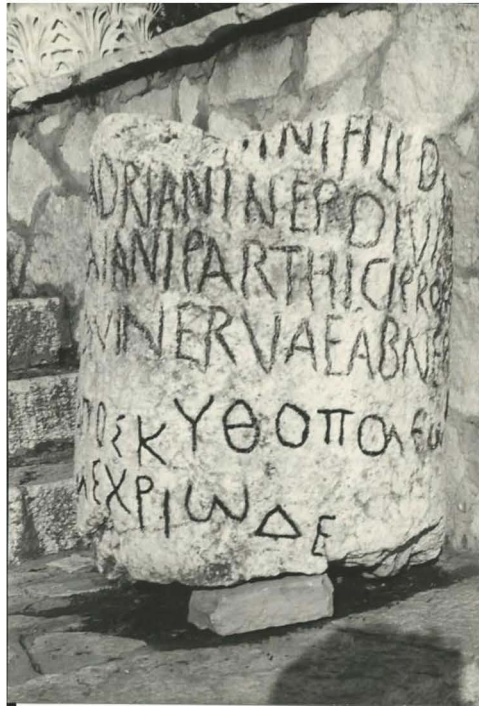 INI FILI D
ADRIANI NEP DIVI
AIANI PARTHICI PRO
VI NERVAE ABNE
ΠΟ ΣΚΥΘΟΠΟΛΕΩ
ΜΕΧΡΙ ΩΔΕ